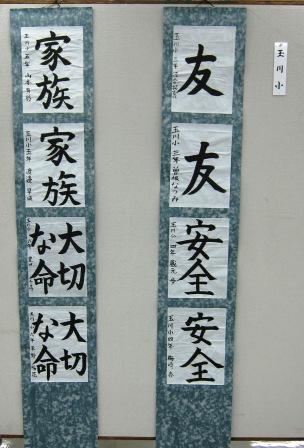 玉川小
友
玉川小 三年
友
玉川小 三年
安全
玉川小 四年
安全
玉川小四年
家族
玉川小五年
家族
玉川小五年
大切な命
大切な命